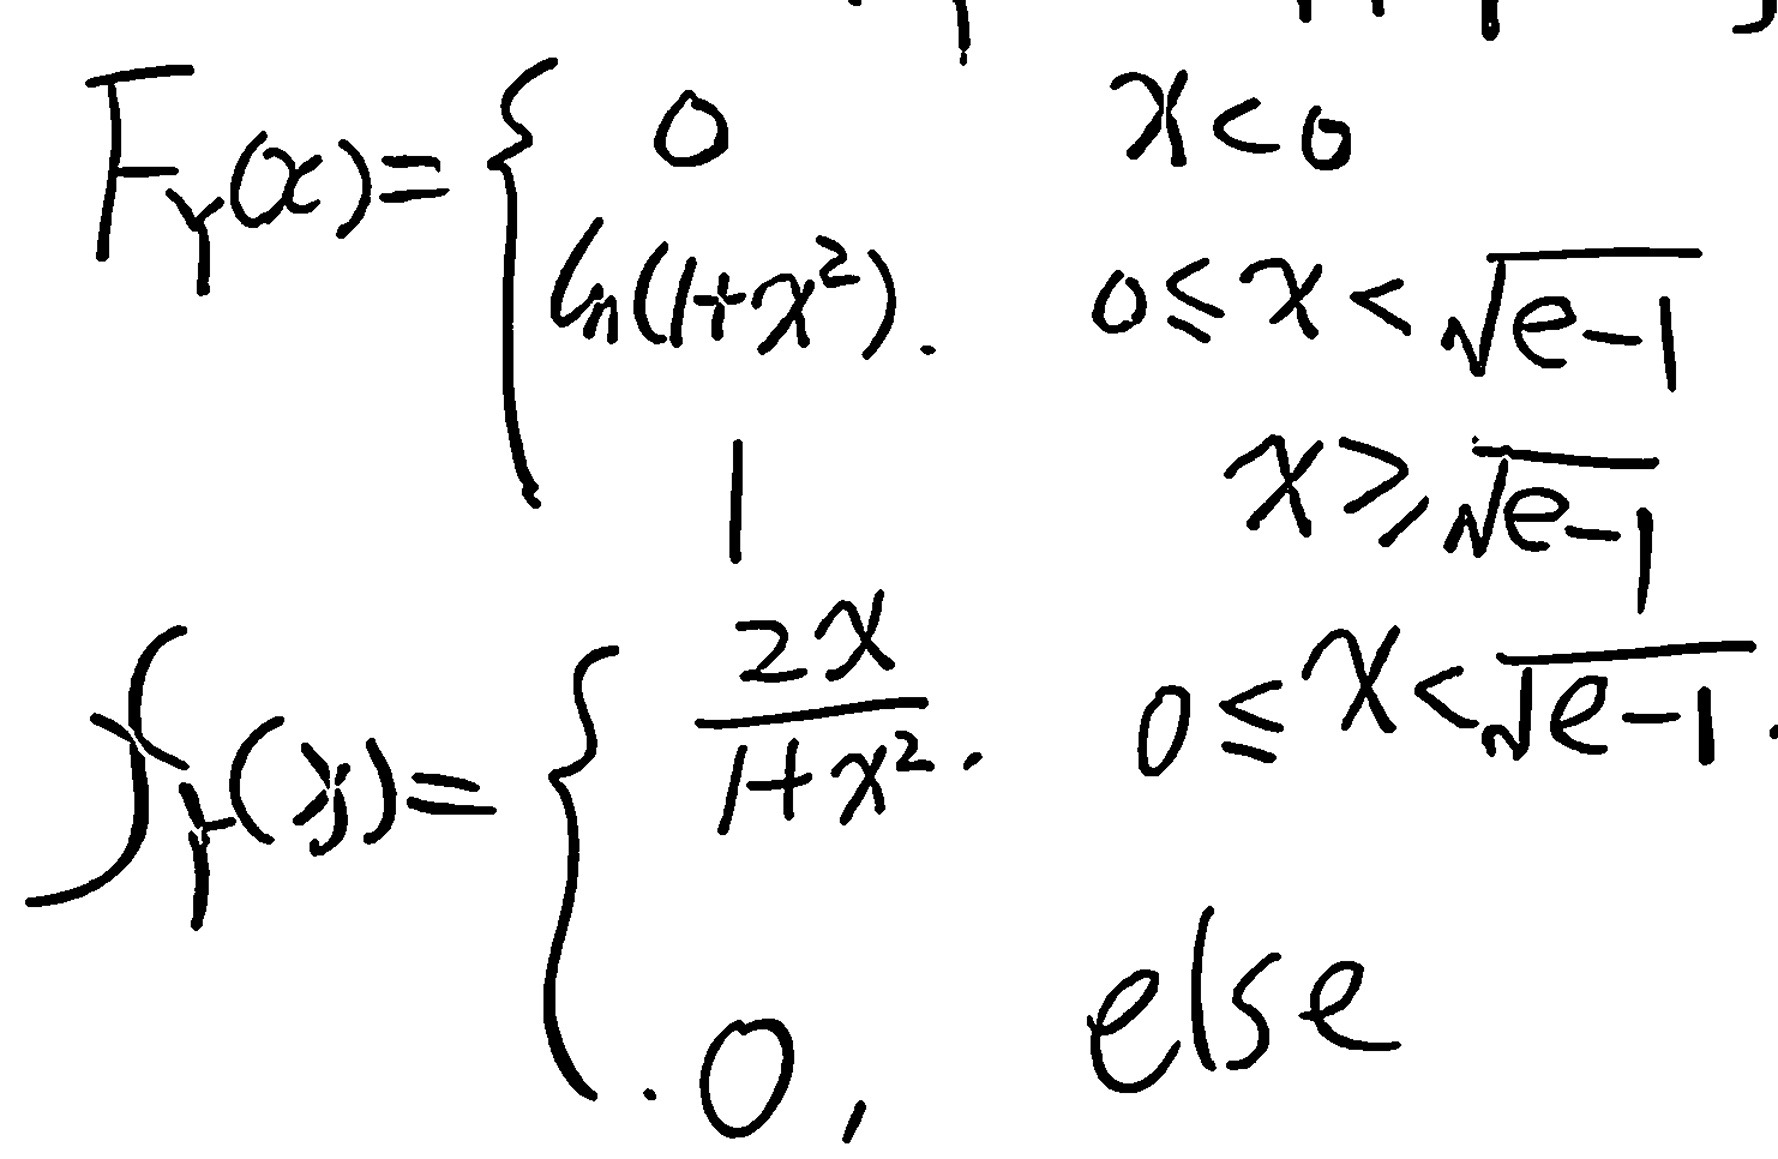 F_Y(x) = { 0 x < 0
ln(1+x²). 0 ≤ x < √(e-1)
1 x ≥ √(e-1)
f_Y(x) = { 2x/(1+x²). 0 ≤ x < √(e-1).
0, else